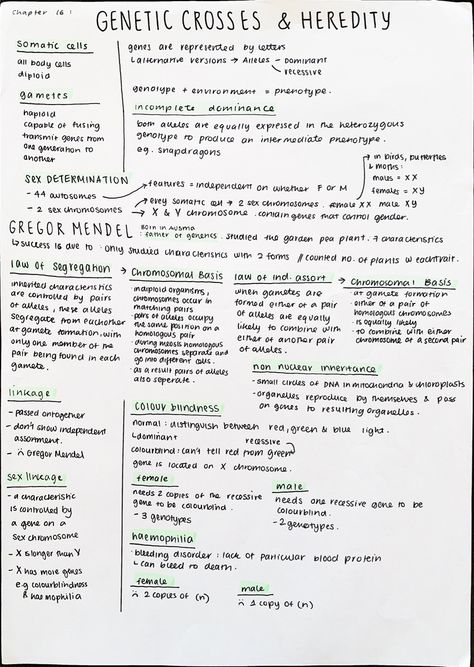 Chapter 16:
GENETIC CROSSES & HEREDITY
somatic cells
all body cells
diploid
gametes
haploid
capable of fusing
transmit genes from
one generation to
another
genes are represented by letters
alternative versions → Alleles - dominant
recessive
genotype + environment = phenotype.
incomplete dominance
both alleles are equally expressed in the heterozygous
genotype to produce an intermediate phenotype.
eg. snapdragons
SEX DETERMINATION
- 44 autosomes
- 2 sex chromosomes
features = independent on whether F or M
every somatic cell → 2 sex chromosomes. female XX male XY
X & Y chromosome. contain genes that control gender.
in birds, butterflies
& moths:
males = XX
females = XY
GREGOR MENDEL
Born in Austria
: father of genetics. studied the garden pea plant. 7 characteristics
success is due to: Only studied characteristics with 2 forms // counted no. of plants w each trait.
law of Segregation → Chromosomal Basis
inherited characteristics
are controlled by pairs
of alleles, these alleles
segregate from eachother
at gamete formation. with
only one member of the
pair being found in each
gamete.
in diploid organisms,
chromosomes occur in
matching pairs
· pairs of alleles occupy
the same position on a
homologous pair
· during meiosis homologous
chromosomes separate and
go into different cells.
· as a result pairs of alleles
also seperate.
law of ind. assort → Chromosomal Basis
when gametes are
formed either of a pair
of alleles are equally
likely to combine with
either of another pair
of alleles.
at gamete formation
· either of a pair of
homologous chromosomes
is equally likely
· to combine with either
chromosome of a second pair
non nuclear inheritance
- small circles of DNA in mitochondria & chloroplasts
- organelles reproduce by themselves & pass
on genes to resulting organelles.
linkage
- passed on together
- don't show independent
assortment.
- Gregor Mendel
sex linkage
- a characteristic
is controlled by
a gene on a
sex chromosome
- X is longer than Y
- X has more genes
e.g colourblindness
& haemophilia
COLOUR BLINDNESS
normal: distinguish between red, green & blue light.
dominant
recessive
colourblind: can't tell red from green
gene is located on X chromosome.
female
needs 2 copies of the recessive
gene to be colourblind.
- 3 genotypes
male
needs one recessive gene to be
colourblind.
- 2 genotypes.
haemophilia
· bleeding disorder: lack of particular blood protein
can bleed to death.
female
2 copies of (n)
male
1 copy of (n)